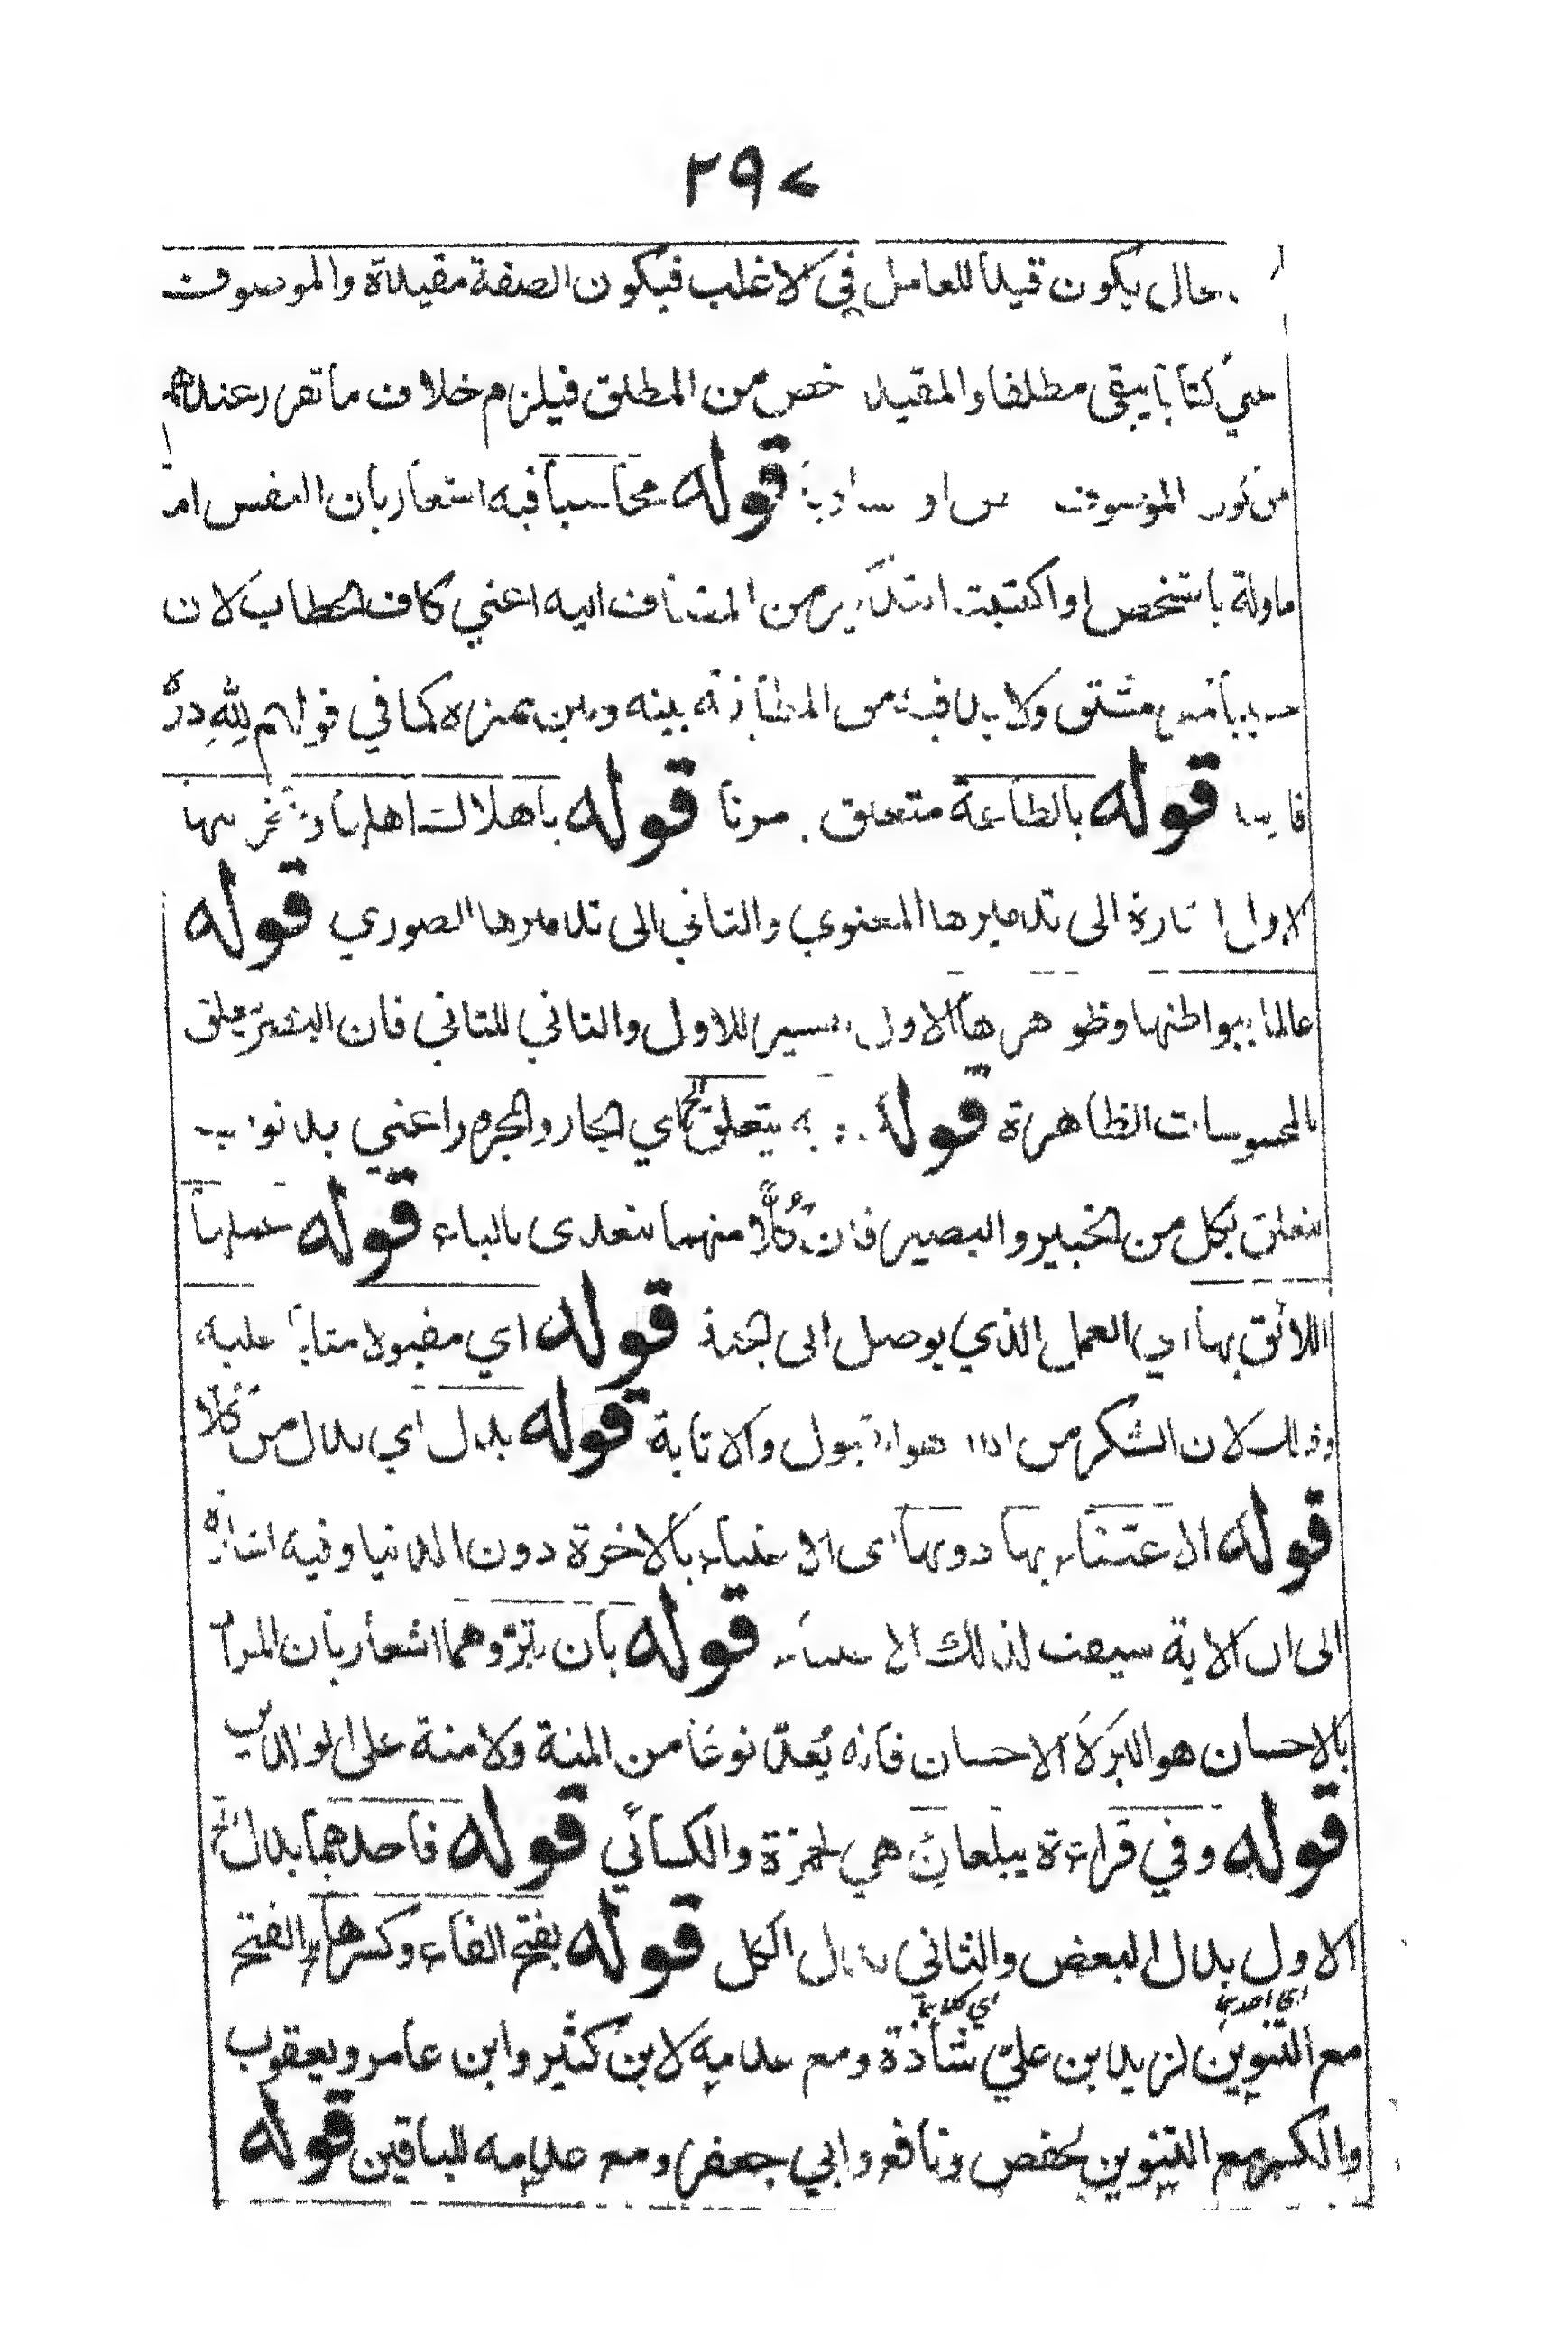 ٢٩٧
حال يكون قيدا للعامل في الاغلب فيكون الصفة مقيدة والموصوف
كتابا يبقى مطلقا والمقيد خص من المطلق فيلزم خلاف ما تقرر عندهم
من كون الموصوف او قوله محاسبا فيه اشعار بان النفس اما
ماولة بالشخص او اكتسبت التذكير من المضاف اليه اعني كاف الخطاب لان
حسيبا مشتق ولا بد فيه من المطابقة بينه وبين مميزه كما في قولهم لله دره
فارسا قوله بالطاعة متعلق قوله باهلاك اهلها وتخريبها
الاول اشارة الى تدميرها المعنوي والثاني الى تدميرها الصوري قوله
عالما ببواطنها وظوهرها الاول تفسير للاول والثاني للثاني فان البصر يتعلق
بالمحسوسات الظاهرة قوله به يتعلق الخ اي الجار والمجرور اعني بذنوب
يتعلق بكل من الخبير والبصير فان كُلًّا منهما يتعدى بالباء قوله عملها
اللائق بها اي العمل الذي يوصل الى الجنة قوله اي مقبولا مثابا عليه
وذلك لان الشكر من الله هو القبول والاثابة قوله بدل اي بدل من كُلّا
قوله الاعتناء بها دونها اى الاعتناء بالاخرة دون الدنيا وفيه اشارة
الى ان الاية سيقت لذلك الاعتناء قوله بان تبرّوهما اشعار بان المراد
بالاحسان هو البر لا الاحسان فانه يُعدّ نوعًا من المنة ولا منة على الوالدين
قوله وفي قراءة يبلغانِّ هي لحمزة والكسائي قوله فاحدهما بدل الخ
الاول بدل البعض والثاني بدل الكل قوله بفتح الفاء وكسرها والفتح
اي احدهما
اي كلاهما
مع التنوين لزيد ابن عليّ شاذة ومع عدمه لابن كثير وابن عامر ويعقوب
والكسر مع التنوين لحفص ونافع وابي جعفر ومع عدمه للباقين قوله